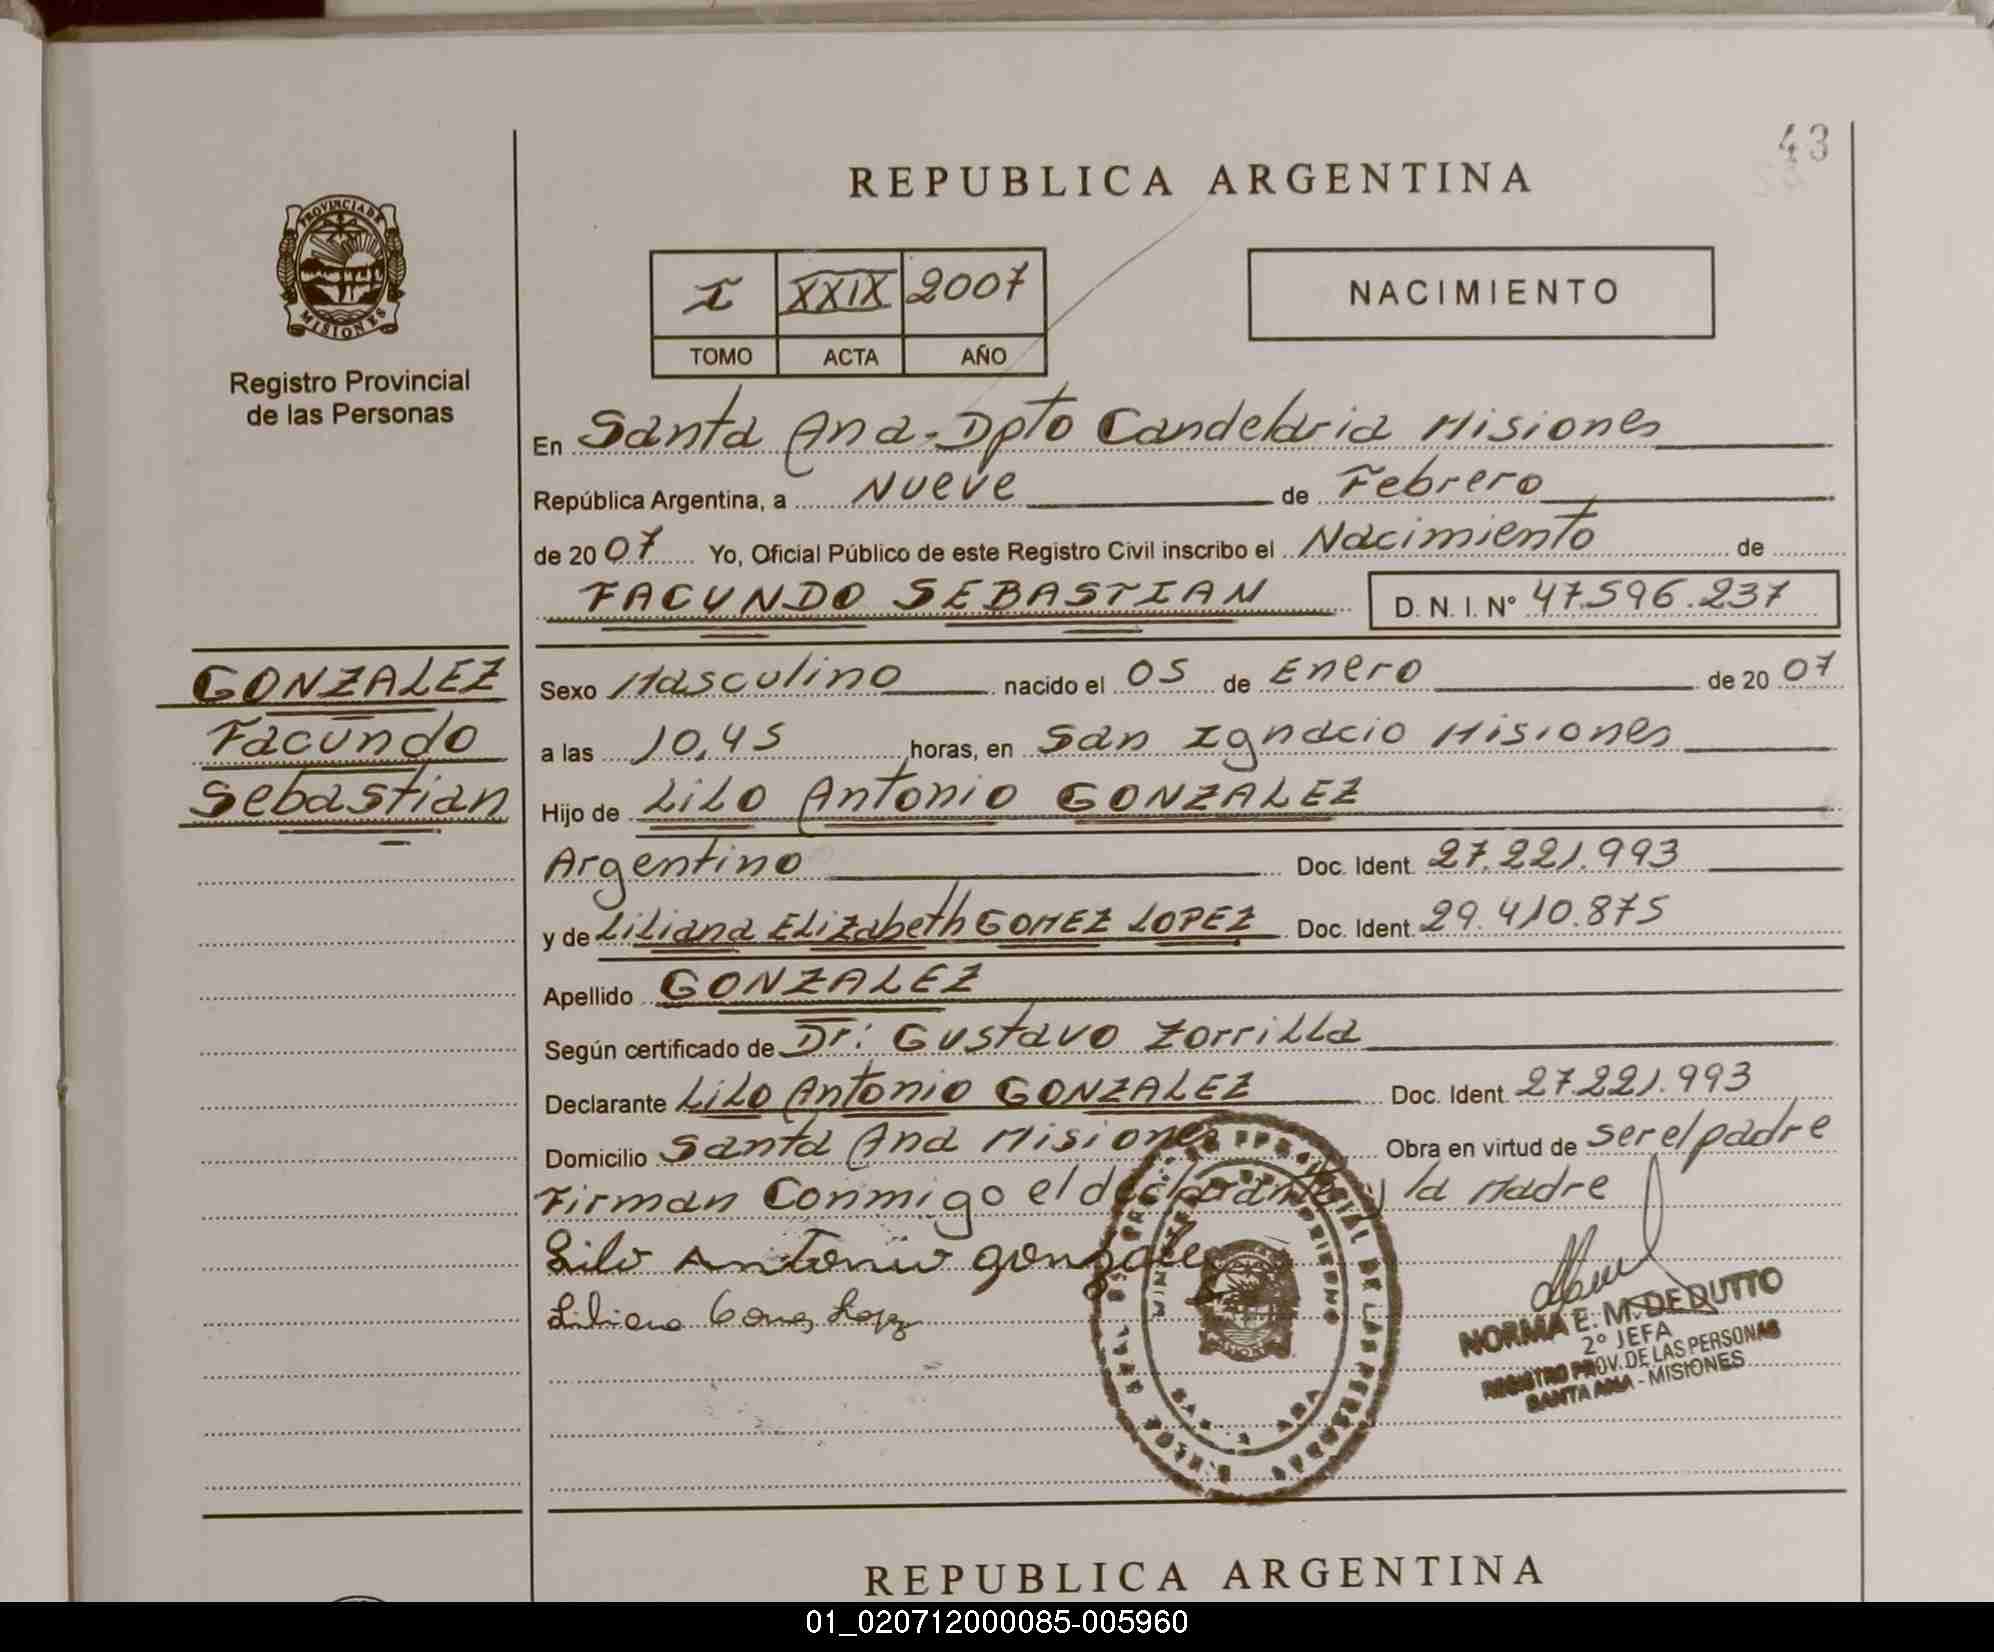 43
REPUBLICA ARGENTINA
PROVINCIA DE
MISIONES
Registro Provincial
de las Personas
I XXIX 2007
TOMO ACTA AÑO
NACIMIENTO
En Santa Ana. Dpto Candelaria Misiones
República Argentina, a Nueve de Febrero
de 20 07 Yo, Oficial Público de este Registro Civil inscribo el Nacimiento de
FACUNDO SEBASTIAN D. N. I. N° 47.596.237
GONZALEZ
Facundo
Sebastian
Sexo Masculino nacido el 05 de Enero de 20 07
a las 10,45 horas, en San Ignacio Misiones
Hijo de LiLO Antonio GONZALEZ
Argentino Doc. Ident. 27.221.993
y de Liliana Elizabeth GOMEZ LOPEZ Doc. Ident. 29.410.875
Apellido GONZALEZ
Según certificado de Dr: Gustavo Zorrilla
Declarante LiLO Antonio GONZALEZ Doc. Ident. 27.221.993
Domicilio Santa Ana Misiones Obra en virtud de ser el padre
Firman Conmigo el declarante y la Madre
Lilo Antonio gonzalez
Liliana Gomez Lopez
NORMA E. M. DE DUTTO
2° JEFA
REGISTRO PROV. DE LAS PERSONAS
SANTA ANA - MISIONES
REPUBLICA ARGENTINA
01_020712000085-005960